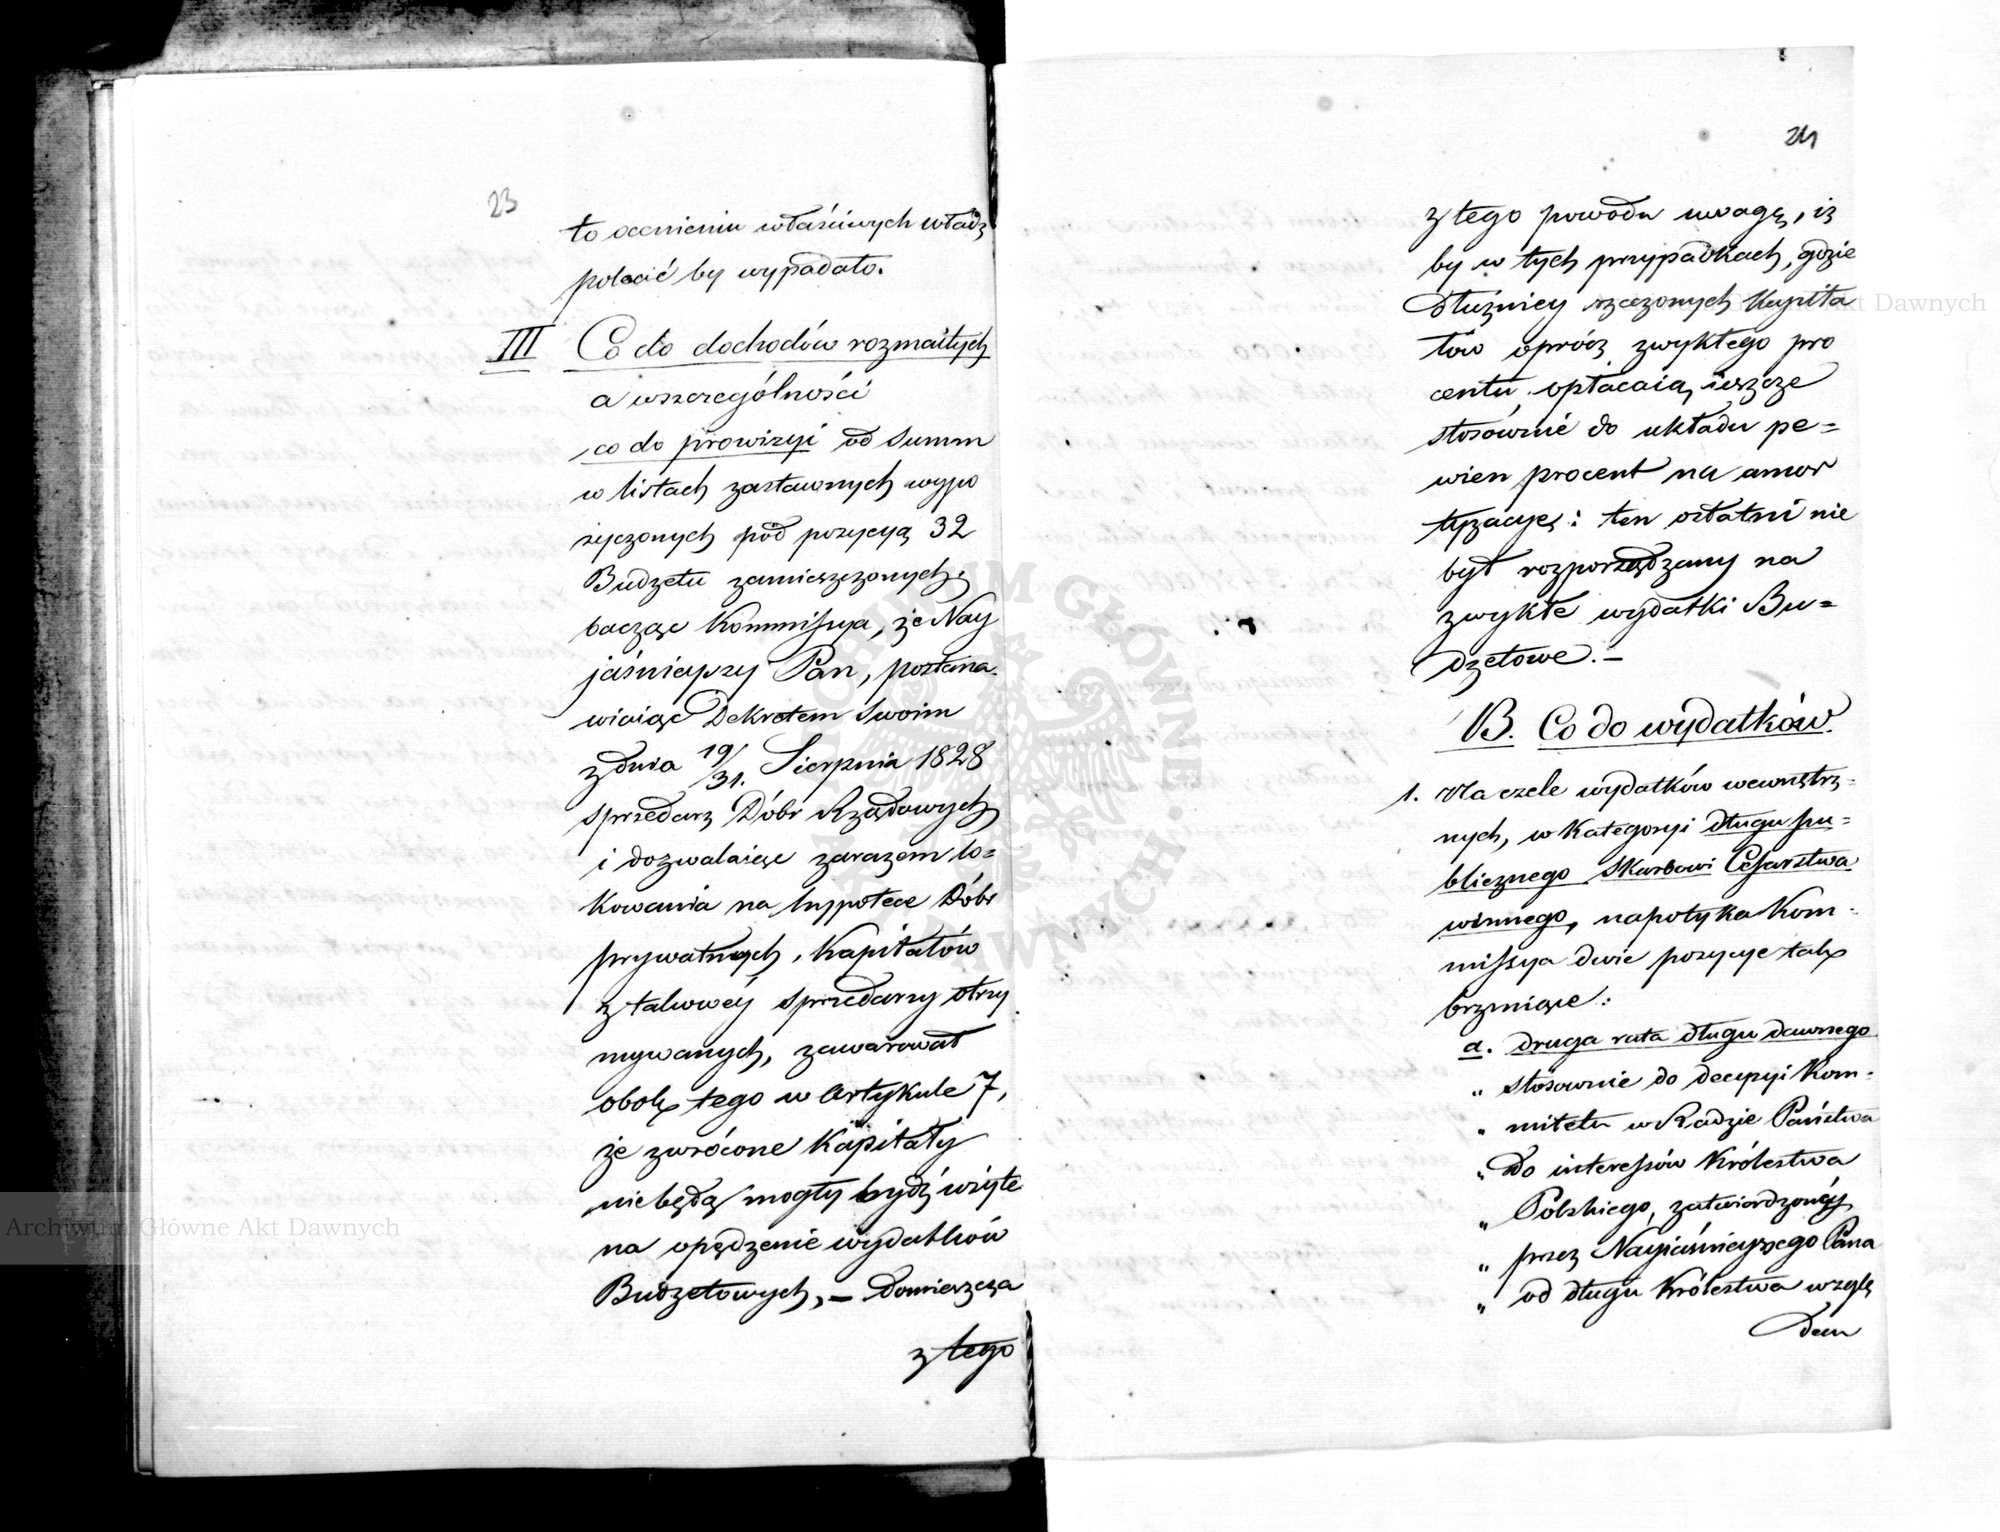 23
to ocenieniu właściwych władz
polecić by wypadało.
III Co do dochodów rozmaitych
a wszczególności
co do prowizyi od Summ
w listach zastawnych wypo
życzonych pod pozycyą 32
Budżetu zamieszczonych.
bacząc Kommissya, że Nay
jaśnieyszy Pan, postana-
wiaiąc Dekretem swoim
z dnia 19/31. Sierpnia 1828
sprzedarz Dóbr Rządowych
i dozwalaiąc zarazem lo=
kowania na hyppotece Dóbr
prywatnych, Kapitałów
z takowéy sprzedarzy otrzy
mywanych, zawarował
obok tego w Artykule 7,
że zwrócone Kapitały
nie będą mogły bydź użyte
na opędzenie wydatków
Budżetowych, — Domieszcza
z tego
24
z tego powodu uwagę, iż
by w tych przypadkach, gdzie
Dłużnicy rzeczonych Kapita
łów oprócz zwykłego pro
centu opłacaią ieszcze
stosownie do układu pe=
wien procent na amor
tyzacyę: ten ostatni nie
był rozporządzany na
zwykłe wydatki Bu=
dżetowe. —
B. Co do wydatków.
1. Na czele wydatków wewnętrz=
nych, w Kategoryi długu pu=
blicznego Skarbowi Cesarstwa
winnego, napotyka Kom=
missya dwie pozycye tak
brzmiące:
a. druga rata długu dawnego
„ stosownie do decyzyi Kom=
„ mitetu w Radzie Państwa
„ do interessów Królestwa
„ Polskiego, zatwierdzonéy
„ przez Nayiaśnieyszego Pana
„ od długu Królestwa wzglę
dem
ARCHIWUM GŁÓWNE AKT DAWNYCH
Archiwum Główne Akt Dawnych
Akt Dawnych